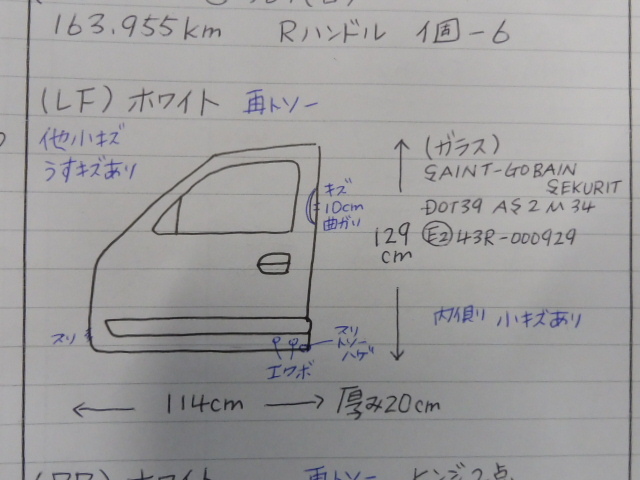 163.955km Rハンドル 1個-6
(LF) ホワイト 再トソー
他小キズ
うすキズあり
キズ
10cm
曲ガリ
(ガラス)
SAINT-GOBAIN
SEKURIT
DOT39 AS2 M34
E2 43R-000929
129
cm
内側り 小キズあり
スリ
エクボ
スリ
トソー
ハゲ
114cm
厚み20cm
ホワイト 再トソー ヒンジ2点